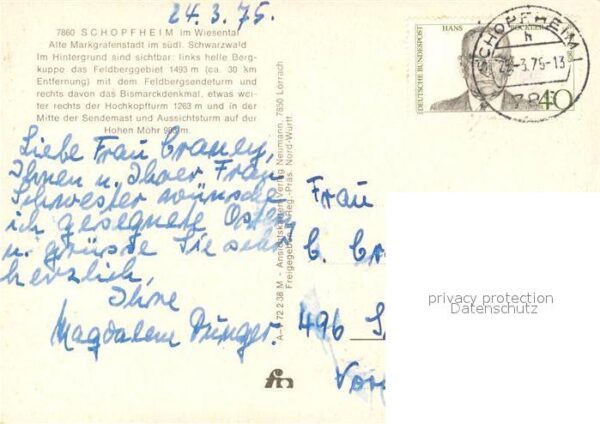 24.3.75.
7860 SCHOPFHEIM im Wiesental
Alte Markgrafenstadt im südl. Schwarzwald
Im Hintergrund sind sichtbar: links helle Berg-
kuppe das Feldberggebiet 1493 m (ca. 30 km
Entfernung) mit dem Feldbergsendeturm und
rechts davon das Bismarckdenkmal, etwas wei-
ter rechts der Hochkopfturm 1263 m und in der
Mitte der Sendemast und Aussichtsturm auf der
Hohen Möhr 985 m
Liebe Frau Craney,
Ihnen u. Ihrer Frau
Schwester wünsche
ich gesegnete Ostern
u. grüsse Sie sehr
herzlich,
Ihre
Magdalena Dünger.
A–I 72 2 36 M – Ansichtskartenverlag Neumann, 7850 Lörrach
Freigegeben d. Reg.-Präs. Nord-Württ.
fm
DEUTSCHE BUNDESPOST
HANS BÖCKLER
40
SCHOPFHEIM 1
h
-3.75-13
Frau
C. Cr
496 S
Vor
privacy protection
Datenschutz